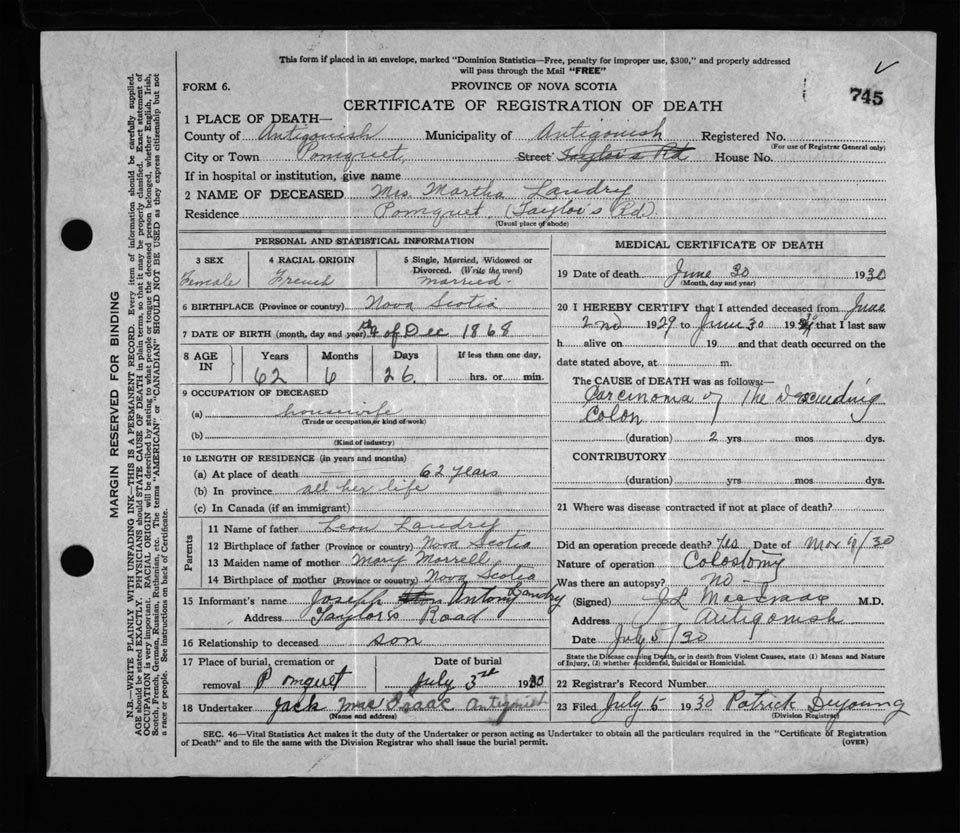 This form if placed in an envelope, marked "Dominion Statistics—Free, penalty for improper use, $300," and properly addressed
will pass through the Mail "FREE"
FORM 6. PROVINCE OF NOVA SCOTIA
745
CERTIFICATE OF REGISTRATION OF DEATH
MARGIN RESERVED FOR BINDING
N.B.—WRITE PLAINLY WITH UNFADING INK—THIS IS A PERMANENT RECORD. Every item of information should be carefully supplied.
AGE should be stated EXACTLY. PHYSICIANS should STATE CAUSE OF DEATH in plain terms, so that it may be properly classified. Exact statement of
OCCUPATION is very important. RACIAL ORIGIN will be described by stating to what people or tongue the deceased person belonged, whether English, Irish,
Scotch, French, German, Russian, Ruthenian, etc. The terms "AMERICAN" or "CANADIAN" SHOULD NOT BE USED as they express citizenship but not
a race or people. See instructions on back of Certificate.
1 PLACE OF DEATH—
County of Antigonish Municipality of Antigonish Registered No.
(For use of Registrar General only)
City or Town Pomquet, Street Taylor's Rd House No.
If in hospital or institution, give name
2 NAME OF DECEASED Mrs. Martha Landry
Residence Pomquet (Taylor's Rd).
(Usual place of abode)
PERSONAL AND STATISTICAL INFORMATION
3 SEX 4 RACIAL ORIGIN 5 Single, Married, Widowed or
Divorced. (Write the word)
Female French married.
6 BIRTHPLACE (Province or country) Nova Scotia
7 DATE OF BIRTH (month, day and year) 4 of Dec 1868
8 AGE IN Years Months Days If less than one day,
62 6 26. hrs. or min.
9 OCCUPATION OF DECEASED
(a) housewife
(Trade or occupation or kind of work)
(b)
(Kind of industry)
10 LENGTH OF RESIDENCE (in years and months)
(a) At place of death 62 years
(b) In province all her life
(c) In Canada (if an immigrant)
Parents
11 Name of father Leon Landry
12 Birthplace of father (Province or country) Nova Scotia
13 Maiden name of mother Mary Morrell
14 Birthplace of mother (Province or country) Nova Scotia
15 Informant's name Joseph Antony Landry
Address Taylor's Road
16 Relationship to deceased son
17 Place of burial, cremation or Date of burial
removal Pomquet July 3rd 1930
18 Undertaker Jack MacIsaac Antigonish
(Name and address)
MEDICAL CERTIFICATE OF DEATH
19 Date of death June 30 1930
(Month, day and year)
20 I HEREBY CERTIFY that I attended deceased from June
2nd 1929 to June 30 19 that I last saw
h alive on 19 and that death occurred on the
date stated above, at m.
The CAUSE of DEATH was as follows:—
Carcinoma of The Descending
Colon
(duration) 2 yrs mos dys.
CONTRIBUTORY
(duration) yrs. mos. dys.
21 Where was disease contracted if not at place of death?
Did an operation precede death? Yes Date of Mar 9/30
Nature of operation Colostomy
Was there an autopsy? No
(Signed) J L M.D.
Address Antigonish
Date July 5/30
State the Disease causing Death, or in death from Violent Causes, state (1) Means and Nature
of Injury, (2) whether Accidental, Suicidal or Homicidal.
22 Registrar's Record Number
23 Filed July 5 1930 Patrick Deyoung
(Division Registrar)
SEC. 46—Vital Statistics Act makes it the duty of the Undertaker or person acting as Undertaker to obtain all the particulars required in the "Certificate of Registration
of Death" and to file the same with the Division Registrar who shall issue the burial permit. (OVER)